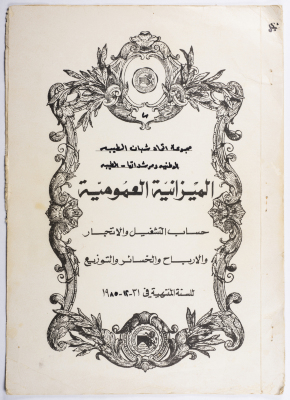 مجموعة اتحاد شبات الطيبه
الوطنيه ومرشداتها - الطيبه
الميزانية العمومية
حساب التشغيل والاتجار
والارباح والخسائر والتوزيع
للسنة المنتهية في ٣١-١٢-١٩٨٥